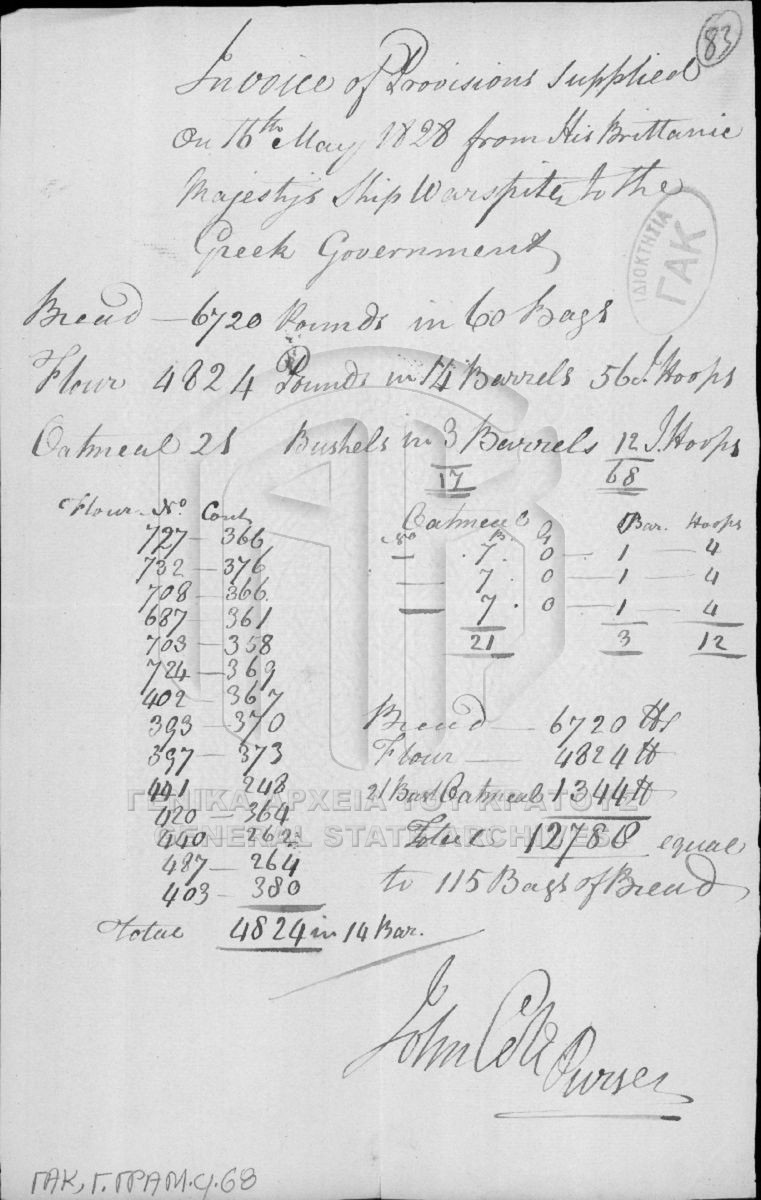 83
Invoice of Provisions Supplied
On 16th May 1828 from His Brittanic
Majestys Ship Warspite to the
Greek Government
ΙΔΙΟΚΤΗΣΙΑ
ΓΑΚ
Bread — 6720 Pounds in 60 Bags
Flour 4824 Pounds in 14 Barrels 56 I. Hoops
Oatmeal 21 Bushels in 3 Barrels 12 I. Hoops
17 68
Flour No Cont
727 — 366
732 — 376
708 — 366
687 — 361
703 — 358
724 — 369
402 — 367
393 — 370
397 — 373
441 248
420 — 364
440 262
487 — 264
403 — 380
Total 4824 in 14 Bar.
Oatmeal
No B. G Bar. Hoops
— 7. 0 — 1 — 4
— 7. 0 — 1 — 4
— 7. 0 — 1 — 4
21 3 12
Bread — 6720 lbs
Flour — 4824 lb
21 Bus Oatmeal — 1344 lb
Total 12788 equal
to 115 Bags of Bread
ΓΕΝΙΚΑ ΑΡΧΕΙΑ ΤΟΥ ΚΡΑΤΟΥΣ
GENERAL STATE ARCHIVES
John
Purser
ΓΑΚ, Γ. ΓΡΑΜ. φ. 68